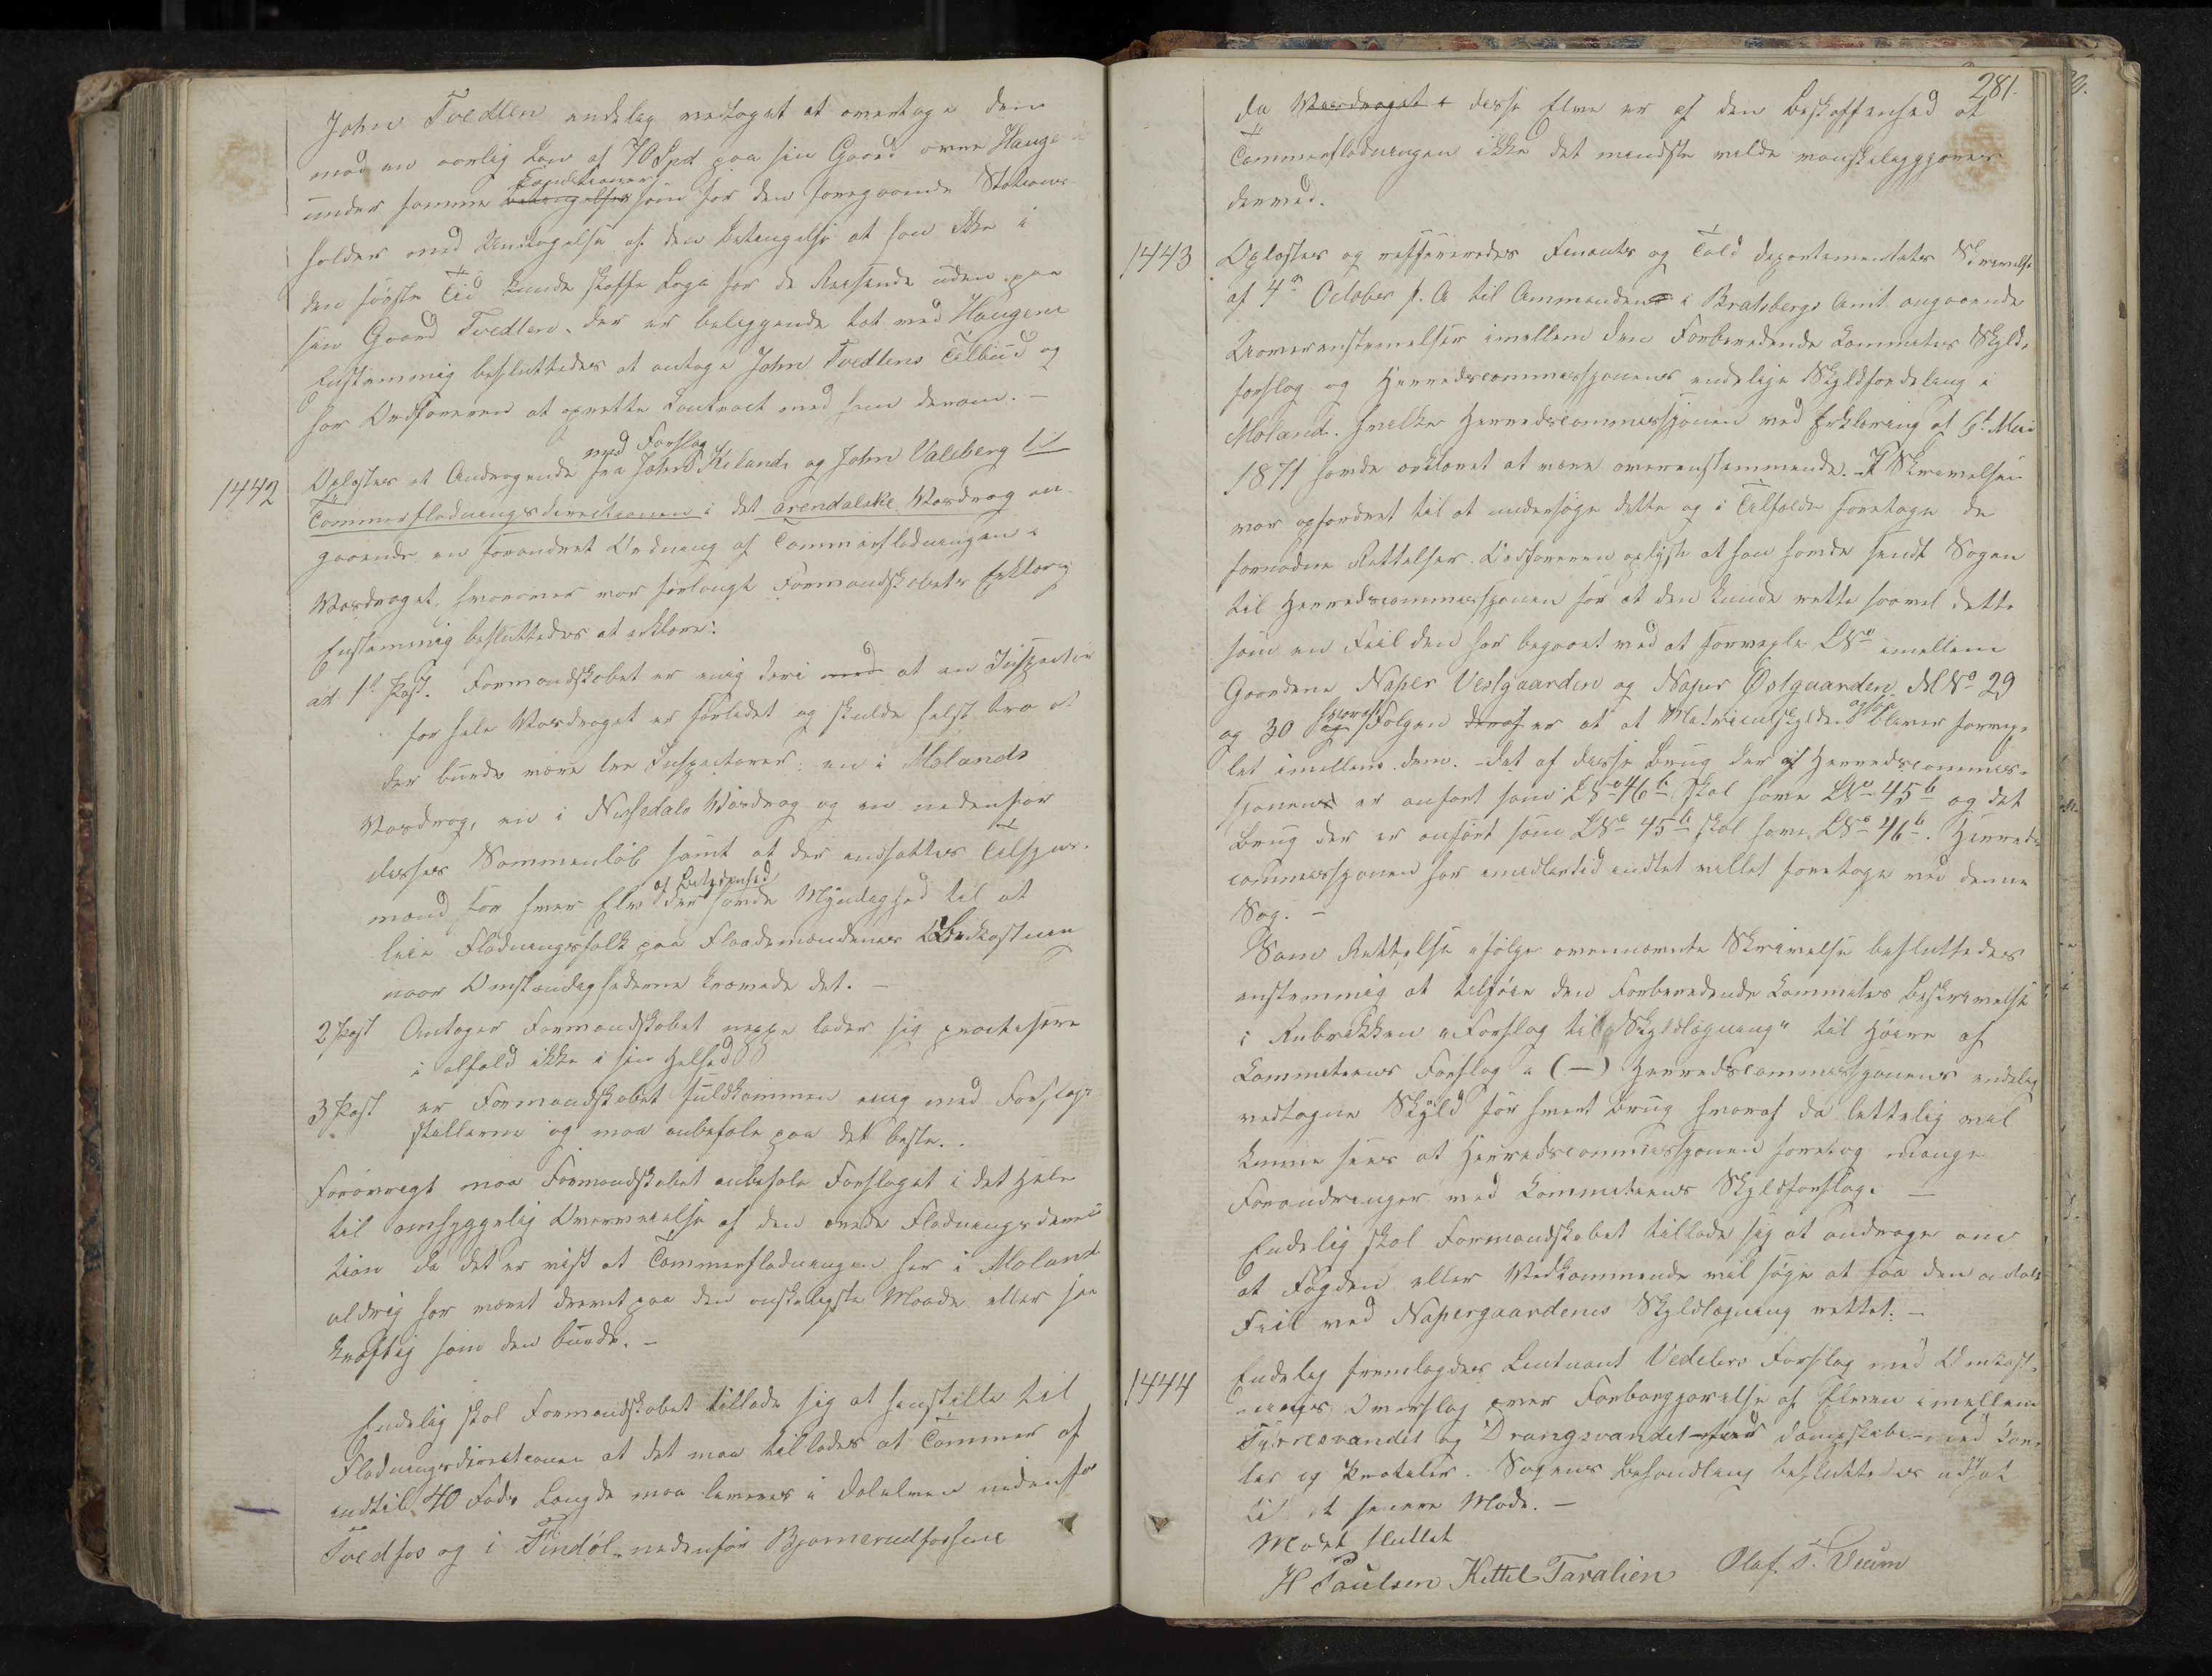 John Tvedten endelig vedtaget at overtage dem
mod en aarlig Løn af 70 Spd paa sin Gaard over Hauge
under samme Conditioner som for den foregaaende Stations-
holder med Undtagelse af den Betingelse at han ikke i
den første Tid kunde skaffe Loge for de Reisende uden paa
sin Gaard Tvedten, der er beliggende tæt ved Haugene
Enstemmig besluttedes at antage John Tvedtens Tilbud og
har Ordføreren at oprette Contract med ham derom. –
1442
Oplæstes et Andragende med Forslag fra John Kilands og John Valeberg til
Tømmerflødningsdirectionen i det arendalske Vasdrag an-
gaaende en forandret Ordning af Tømmerflødningen i
Vasdraget, hvorover var forlangt Formandskabets Erklæring
Enstemmig besluttedes at erklære:
ad 1st Post. Formandskabet er enig deri med at en Inspector
for hele Vasdraget er forledet og skulde helst tro at
der burde være tre Inspectorer: en i Molands
Vasdrag, en i Nissedals Vasdrag og en nedenfor
disses Sammenløb samt at der ansattes Tilsyns-
mænd for hver Elv af Betydenhed der havde Myndighed til at
leie Flødningsfolk paa Flaademændenes Bekostning
naar Omstændighederne krævede det. –
2 Post Antager Formandskabet neppe lader sig practisere
i alfald ikke i sin Helhed
3 Post er Formandskabet fuldkommen enig med Forslags-
stillerne og maa anbefale paa det beste.
Forøvrigt maa Formandskabet anbefale Forslaget i det Hele
til omhyggelig Overveielse af den ærede Flødningsdirec-
tion da det er vist at Tømmerflødningen her i Moland
aldrig har været drevet paa den ønskeligste Maade eller saa
kraftig som den burde. –
Endelig skal Formandskabet tillade sig at henstille til
Flødningsdirectionen at det maa tillades at Tømmer af
indtil 40 Fods Længde maa leveres i Dalelven nedenfor
Tvedfos og i Findøl nedenfor Bjørnerudforsene
281.
da Vasdraget i disse Elve er af den Beskaffenhed at
Tømmerflødningen ikke det mindste vilde vanskeliggjøres
derved.
1443
Oplæstes og refereredes Finants og Told departementets Skrivelse
af 4de October f. A til Amtmanden i Bratsbergs Amt angaaende
Uoverenstemmelser imellem den Forberedende Commites Skyld-
forslag og Herredscommissjonens endelige Skyldfordeling i
Moland. Hvilke Herredscommissjonen ved Erklæring af 6t Mai
1871 havde erklæret at være overenstemmende. – I Skrivelsen
var opfordret til at undersøge dette og i Tilfælde foretage de
fornødne Rettelser. Ordføreren oplyste at han havde sendt Sagen
til Herredscommissjonen for at den kunde rette saavel dette
som en Feil den har begaaet ved at forvexle LNo imellem
Gaardene Naper Vestgaarden og Naper Østgaarden MNo 29
og 30 hvoraf Følgen er at at Matriculskylden ogsaa bliver forvex-
let imellem dem. – Det af disse Brug der af Herredscommis-
sjonens er anført som LNo 46b skal have LNo 45b og det
Brug der er anført som LNo 45b skal have LNo 46b. Herreds-
commissjonen har imidlertid indtet villet foretage ved denne
Sag. –
Som Rettelse ifølge ovennævnte Skrivelse besluttedes
enstemmig at tilføie den Forberedende Commites Beskrivelse
i Rubrikken "Forslag til Skyldlægning" til Høire af
Commiteens Forslag a (–) Herredscommissjonens endelig
vedtagne Skyld for hvert Brug hvoraf da lettelig vil
kunne sees at Herredscommissjonen foretog mange
Forandringer ved Commiteens Skyldforslag. –
Endelig skal Formandskabet tillade sig at andrage om
at Fogden eller Vedkommende vil søge at faa den omtalte
Feil ved Napergaardenes Skyldlægning rettet. –
1444
Endelig fremlagdes Leutnant Vedelers Forslag med Omkost-
nings Overslag over Farbargjørelse af Elven imellem
Fyrresvandet og Drangsvandet med Dampskibe med Kar-
ter og Profiler. Sagens Behandling besluttedes udsat
til et senere Møde. –
Mødet sluttet
H Paulsen Kittil Taralien Olaf T. Veum